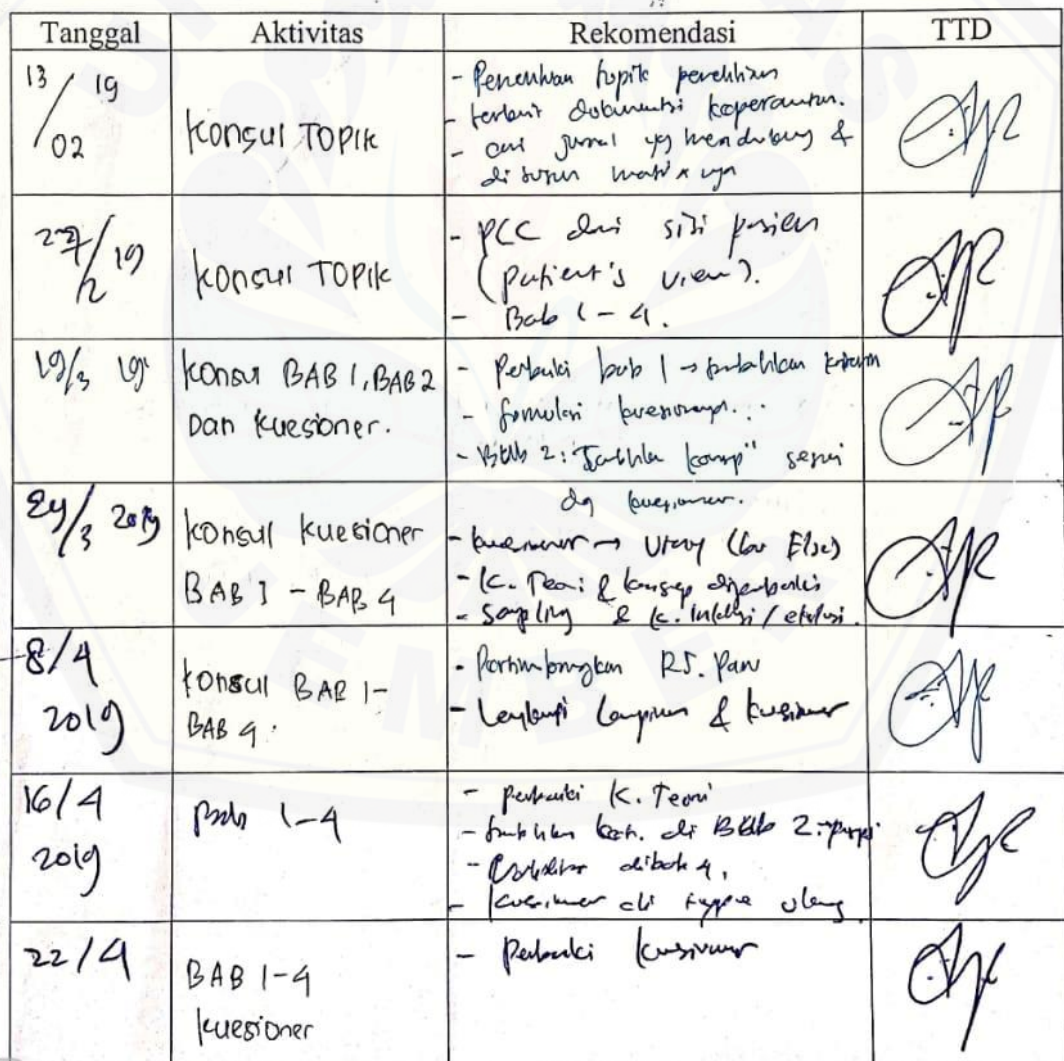 Tanggal Aktivitas Rekomendasi TTD
13/02 19
Konsul TOPIK
- Penentuan topik penelitian
terkait dokumentasi keperawatan.
- cari jurnal yg mendukung &
disusun matrix nya
27/2 19
Konsul TOPIK
- PCC dari sisi pasien
(patient's view).
- Bab 1-4.
19/3 19
Konsul BAB 1, BAB 2
Dan kuesioner.
- Perbaiki bab 1 →
- formulasi kuesionernya...
- Bab 2: konsep" sesuai
dg kuesioner.
24/3 2019
Konsul kuesioner
BAB 1 - BAB 4
- kuesioner →
- K. Teori & konsep diperbaiki
- Sampling & K. Inklusi / eksklusi.
8/4
2019
Konsul BAB 1-
BAB 4.
- Pertimbangkan RS. Paru
- Lengkapi Lampiran & kuesioner
16/4
2019
Bab 1-4
- perbaiki K. Teori
- di Bab 2.
- dibab 4.
- kuesioner di ulang
22/4
BAB 1-4
kuesioner
- Perbaiki kuesioner
JEMBER